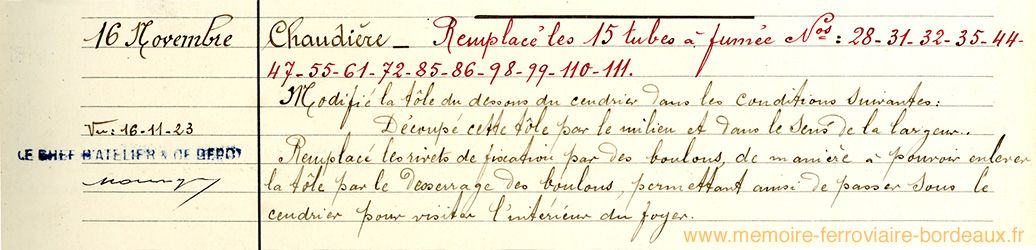 16 Novembre
Chaudière _ Remplacé les 15 tubes à fumée Nos : 28-31-32-35-44-
47-55-61-72-85-86-98-99-110-111.
Modifié la tôle du dessous du cendrier dans les conditions suivantes:
Découpé cette tôle par le milieu et dans le sens de la largeur..
Remplacé les rivets de fixation par des boulons, de manière à pouvoir enlever
la tôle par le desserrage des boulons, permettant ainsi de passer sous le
cendrier pour visiter l'intérieur du foyer.
Vu: 16-11-23
LE CHEF D'ATELIER DE DEPOT
www.memoire-ferroviaire-bordeaux.fr